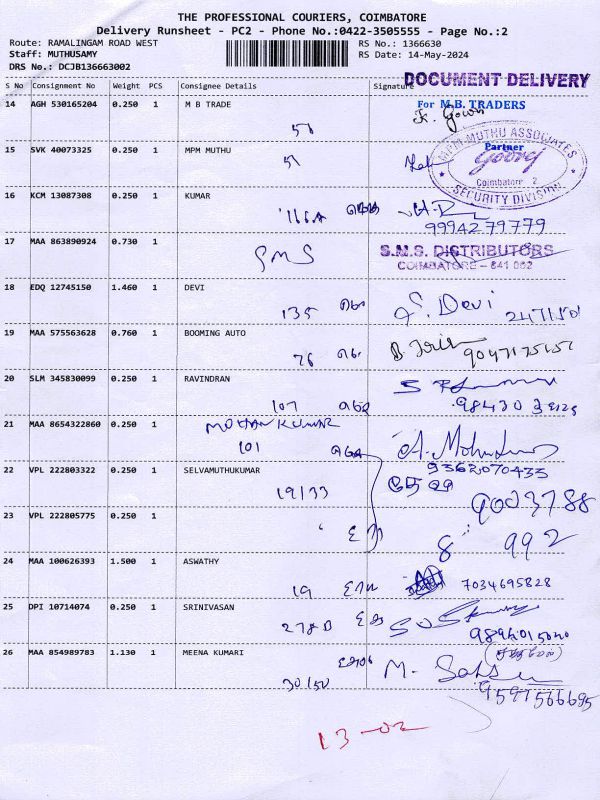 THE PROFESSIONAL COURIERS, COIMBATORE
Delivery Runsheet - PC2 - Phone No.:0422-3505555 - Page No.:2
Route: RAMALINGAM ROAD WEST RS No.: 1366630
Staff: MUTHUSAMY RS Date: 14-May-2024
DRS No.: DCJB136663002 DOCUMENT DELIVERY
S No Consignment No Weight PCS Consignee Details Signature
14 AGH 530165204 0.250 1 M B TRADE For M.B. TRADERS
MPM MUTHU ASSOCIATES
Partner
15 SVK 40073325 0.250 1 MPM MUTHU
51
Coimbatore 2
SECURITY DIVISION
16 KCM 13087308 0.250 1 KUMAR
9994279779
17 MAA 863890924 0.730 1 SMS S.M.S. DISTRIBUTORS
COIMBATORE - 641 002
18 EDQ 12745150 1.460 1 DEVI
135 Devi
19 MAA 575563628 0.760 1 BOOMING AUTO
76
20 SLM 345830099 0.250 1 RAVINDRAN
107
21 MAA 8654322860 0.250 1 MOHAN KUMAR
101 9362070433
22 VPL 222803322 0.250 1 SELVAMUTHUKUMAR
19/33 9003788
23 VPL 222805775 0.250 1
992
24 MAA 100626393 1.500 1 ASWATHY
19 7034695828
25 DPI 10714074 0.250 1 SRINIVASAN
278B
26 MAA 854989783 1.130 1 MEENA KUMARI
30/50 9597566695
13-02